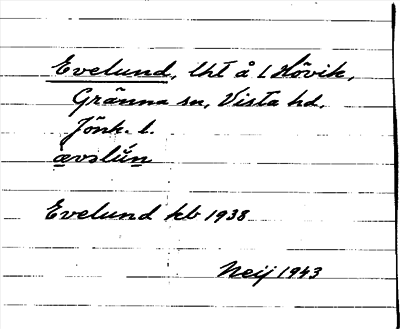 Evelund, lht å L Hövik,
Gränna sn, Vista hd.
Jönk. l.
ævəlún
Evelund kb 1938
Neij 1943